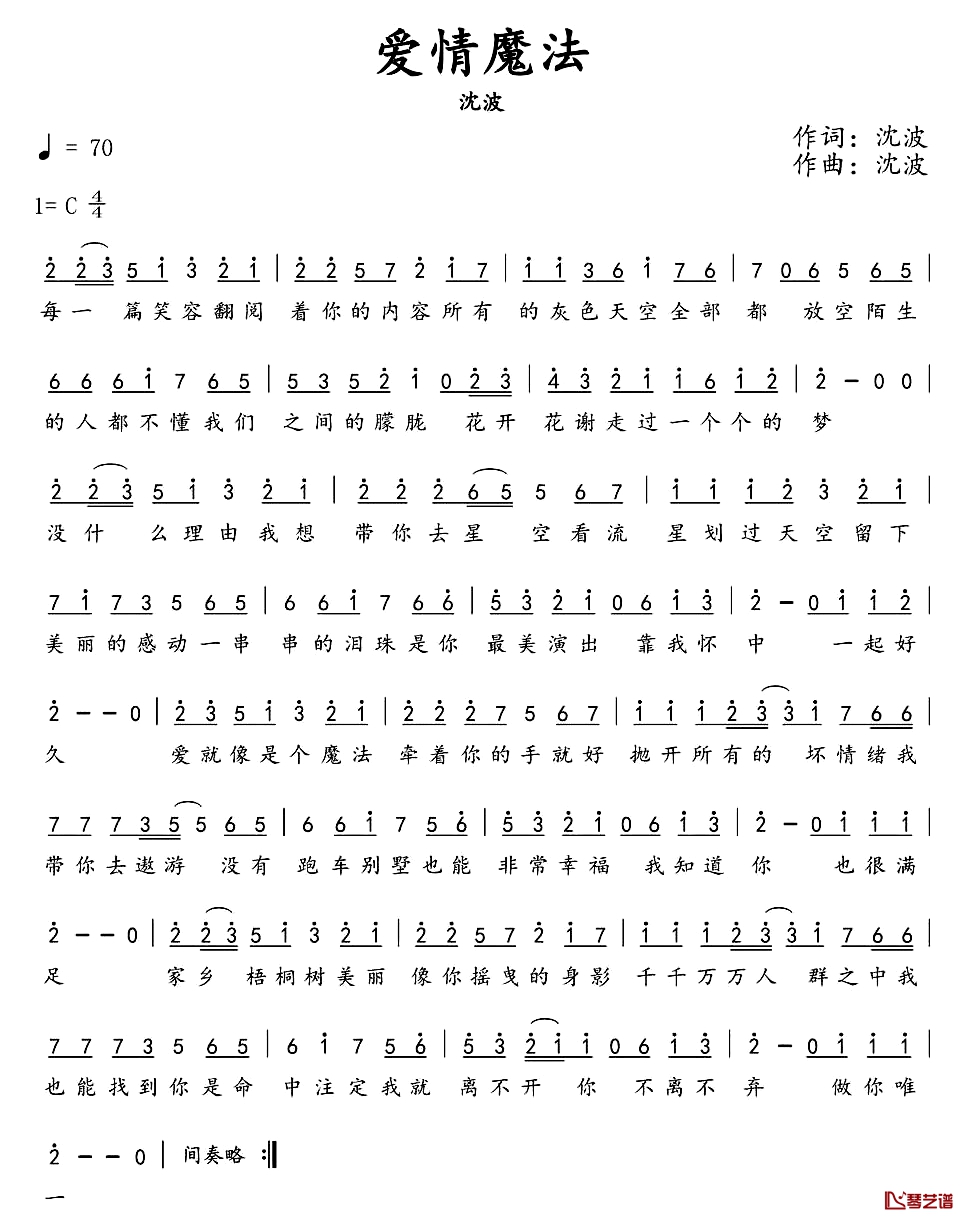 爱情魔法
沈波
♩ = 70
作词：沈波
作曲：沈波
1= C 4/4
2̇ 2̇ 3̇ 5 1̇ 3̇ 2̇ 1̇ | 2̇ 2̇ 5 7 2̇ 1̇ 7 | 1̇ 1̇ 3 6 1̇ 7 6 | 7 0 6 5 6 5 |
每一 篇笑容翻阅 着你的内容所有 的灰色天空全部 都 放空陌生
6 6 6 1̇ 7 6 5 | 5 3 5 2̇ 1̇ 0 2̇ 3̇ | 4̇ 3̇ 2̇ 1̇ 1̇ 6 1̇ 2̇ | 2̇ － 0 0 |
的人都不懂我们 之间的朦胧 花开 花谢走过一个个的 梦
2̇ 2̇ 3̇ 5 1̇ 3̇ 2̇ 1̇ | 2̇ 2̇ 2̇ 6 5 5 6 7 | 1̇ 1̇ 1̇ 2̇ 3̇ 2̇ 1̇ |
没什 么理由我想 带你去星 空看流 星划过天空留下
7 1̇ 7 3 5 6 5 | 6 6 1̇ 7 6 6̇ | 5̇ 3̇ 2̇ 1̇ 0 6 1̇ 3̇ | 2̇ － 0 1̇ 1̇ 2̇ |
美丽的感动一串 串的泪珠是你 最美演出 靠我怀 中 一起好
2̇ － － 0 | 2̇ 3̇ 5 1̇ 3̇ 2̇ 1̇ | 2̇ 2̇ 2̇ 7 5 6 7 | 1̇ 1̇ 1̇ 2̇ 3̇ 3̇ 1̇ 7 6 6 |
久 爱就像是个魔法 牵着你的手就好 抛开所有的 坏情绪我
7 7 7 3 5 5 6 5 | 6 6 1̇ 7 5 6̇ | 5̇ 3̇ 2̇ 1̇ 0 6 1̇ 3̇ | 2̇ － 0 1̇ 1̇ 1̇ |
带你去遨游 没有 跑车别墅也能 非常幸福 我知道 你 也很满
2̇ － － 0 | 2̇ 2̇ 3̇ 5 1̇ 3̇ 2̇ 1̇ | 2̇ 2̇ 5 7 2̇ 1̇ 7 | 1̇ 1̇ 1̇ 2̇ 3̇ 3̇ 1̇ 7 6 6 |
足 家乡 梧桐树美丽 像你摇曳的身影 千千万万人 群之中我
7 7 7 3 5 6 5 | 6 1̇ 7 5 6̇ | 5̇ 3̇ 2̇ 1̇ 1̇ 0 6 1̇ 3̇ | 2̇ － 0 1̇ 1̇ 1̇ |
也能找到你是命 中注定我就 离不开 你 不离不 弃 做你唯
2̇ － － 0 | 间奏略 :||
一
琴艺谱